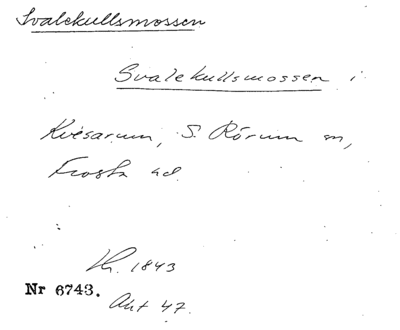 Svalekullsmossen
Svalekullsmossen i
Kvesarum, S. Rörum sn,
Frosta hd.
Lh. 1843
Nr 6743.
Akt 47.